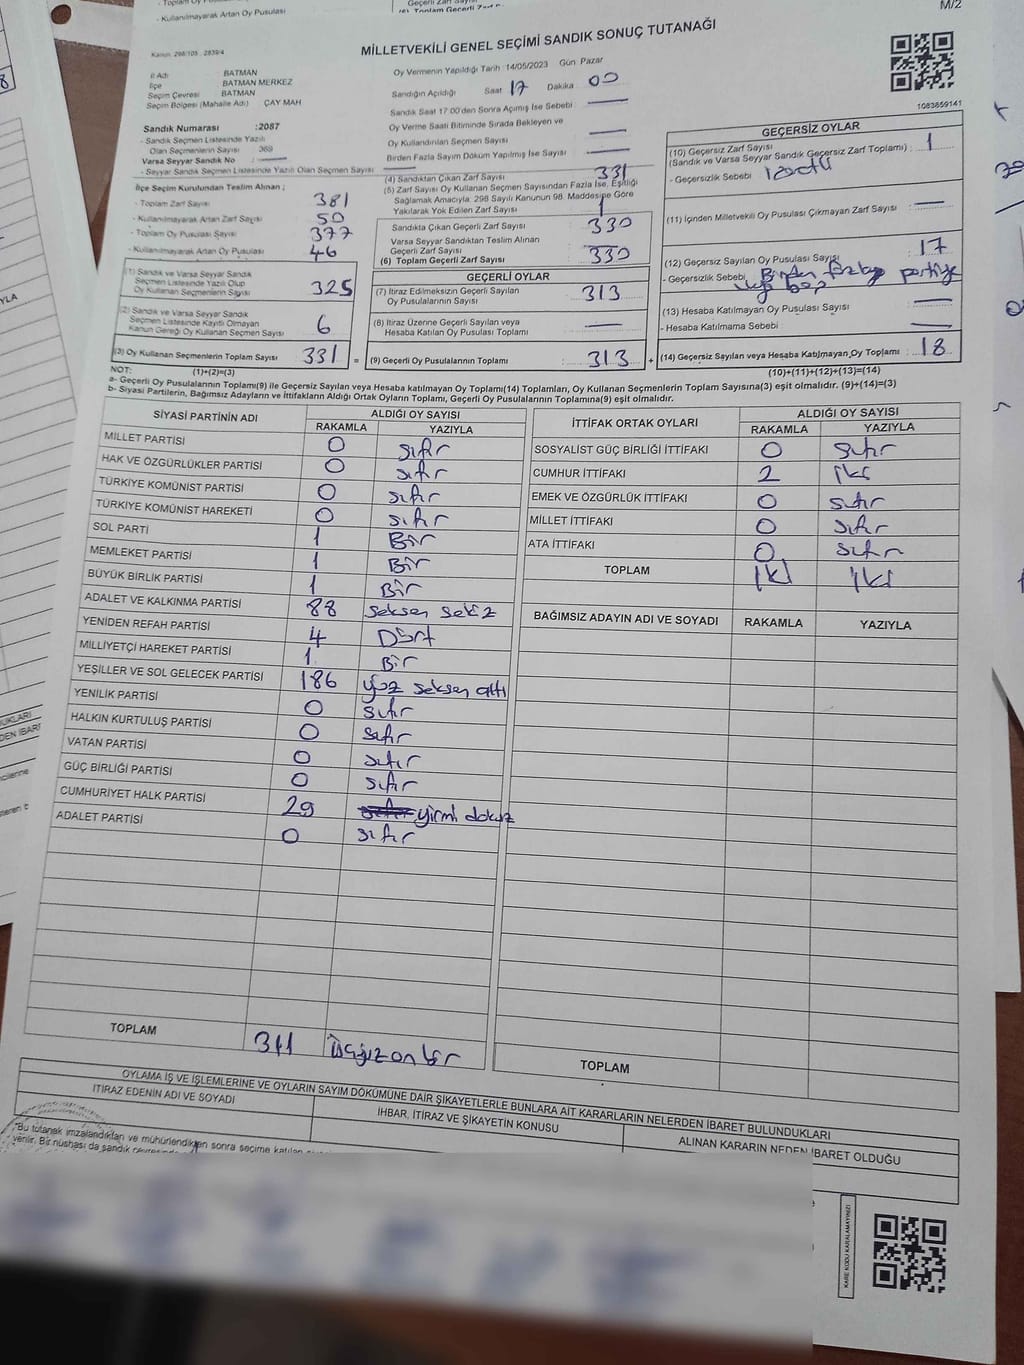 M/2
- Kullanılmayarak Artan Oy Pusulası
MİLLETVEKİLİ GENEL SEÇİMİ SANDIK SONUÇ TUTANAĞI
Kanun: 298/105 , 2839/4
İl Adı BATMAN
İlçe BATMAN MERKEZ
Seçim Çevresi BATMAN
Seçim Bölgesi (Mahalle Adı) ÇAY MAH
Sandık Numarası :2087
- Sandık Seçmen Listesinde Yazılı
Olan Seçmenlerin Sayısı 369
Varsa Seyyar Sandık No : —
- Seyyar Sandık Seçmen Listesinde Yazılı Olan Seçmen Sayısı —
İlçe Seçim Kurulundan Teslim Alınan ;
- Toplam Zarf Sayısı 381
- Kullanılmayarak Artan Zarf Sayısı 50
- Toplam Oy Pusulası Sayısı 377
- Kullanılmayarak Artan Oy Pusulası 46
(1) Sandık ve Varsa Seyyar Sandık
Seçmen Listesinde Yazılı Olup
Oy Kullanan Seçmenlerin Sayısı 325
(2) Sandık ve Varsa Seyyar Sandık
Seçmen Listesinde Kayıtlı Olmayan
Kanun Gereği Oy Kullanan Seçmen Sayısı 6
(3) Oy Kullanan Seçmenlerin Toplam Sayısı 331 =
Oy Vermenin Yapıldığı Tarih :14/05/2023 Gün Pazar
Sandığın Açıldığı Saat 17 Dakika 00
Sandık Saat 17:00'den Sonra Açılmış İse Sebebi : —
Oy Verme Saati Bitiminde Sırada Bekleyen ve
Oy Kullandırılan Seçmen Sayısı —
Birden Fazla Sayım Döküm Yapılmış İse Sayısı —
(4) Sandıktan Çıkan Zarf Sayısı 331
(5) Zarf Sayısı Oy Kullanan Seçmen Sayısından Fazla İse, Eşitliği
Sağlamak Amacıyla, 298 Sayılı Kanunun 98. Maddesine Göre
Yakılarak Yok Edilen Zarf Sayısı
Sandıkta Çıkan Geçerli Zarf Sayısı 330
Varsa Seyyar Sandıktan Teslim Alınan
Geçerli Zarf Sayısı
(6) Toplam Geçerli Zarf Sayısı 330
GEÇERLİ OYLAR
(7) İtiraz Edilmeksizin Geçerli Sayılan
Oy Pusulalarının Sayısı : 313
(8) İtiraz Üzerine Geçerli Sayılan veya
Hesaba Katılan Oy Pusulası Toplamı : —
(9) Geçerli Oy Pusulalarının Toplamı : 313 +
1083859141
GEÇERSİZ OYLAR
(10) Geçersiz Zarf Sayısı
(Sandık ve Varsa Seyyar Sandık Geçersiz Zarf Toplamı) : 1
- Geçersizlik Sebebi
(11) İçinden Milletvekili Oy Pusulası Çıkmayan Zarf Sayısı : —
(12) Geçersiz Sayılan Oy Pusulası Sayısı : 17
- Geçersizlik Sebebi Birden fazla partiye
(13) Hesaba Katılmayan Oy Pusulası Sayısı : —
- Hesaba Katılmama Sebebi —
(14) Geçersiz Sayılan veya Hesaba Katılmayan Oy Toplamı : 18
NOT: (1)+(2)=(3) (10)+(11)+(12)+(13)=(14)
a- Geçerli Oy Pusulalarının Toplamı(9) ile Geçersiz Sayılan veya Hesaba katılmayan Oy Toplamı(14) Toplamları, Oy Kullanan Seçmenlerin Toplam Sayısına(3) eşit olmalıdır. (9)+(14)=(3)
b- Siyasi Partilerin, Bağımsız Adayların ve İttifakların Aldığı Ortak Oyların Toplamı, Geçerli Oy Pusulalarının Toplamına(9) eşit olmalıdır.
SİYASİ PARTİNİN ADI ALDIĞI OY SAYISI
RAKAMLA YAZIYLA
MİLLET PARTİSİ 0 sıfır
HAK VE ÖZGÜRLÜKLER PARTİSİ 0 sıfır
TÜRKİYE KOMÜNİST PARTİSİ 0 sıfır
TÜRKİYE KOMÜNİST HAREKETİ 0 sıfır
SOL PARTİ 1 Bir
MEMLEKET PARTİSİ 1 Bir
BÜYÜK BİRLİK PARTİSİ 1 Bir
ADALET VE KALKINMA PARTİSİ 88 seksen sekiz
YENİDEN REFAH PARTİSİ 4 Dört
MİLLİYETÇİ HAREKET PARTİSİ 1 Bir
YEŞİLLER VE SOL GELECEK PARTİSİ 186 yüz seksen altı
YENİLİK PARTİSİ 0 sıfır
HALKIN KURTULUŞ PARTİSİ 0 sıfır
VATAN PARTİSİ 0 sıfır
GÜÇ BİRLİĞİ PARTİSİ 0 sıfır
CUMHURİYET HALK PARTİSİ 29 yirmi dokuz
ADALET PARTİSİ 0 sıfır
TOPLAM 311 üçyüz on bir
İTTİFAK ORTAK OYLARI ALDIĞI OY SAYISI
RAKAMLA YAZIYLA
SOSYALİST GÜÇ BİRLİĞİ İTTİFAKI 0 sıfır
CUMHUR İTTİFAKI 2 iki
EMEK VE ÖZGÜRLÜK İTTİFAKI 0 sıfır
MİLLET İTTİFAKI 0 sıfır
ATA İTTİFAKI 0 sıfır
TOPLAM iki iki
BAĞIMSIZ ADAYIN ADI VE SOYADI RAKAMLA YAZIYLA
TOPLAM
OYLAMA İŞ VE İŞLEMLERİNE VE OYLARIN SAYIM DÖKÜMÜNE DAİR ŞİKAYETLERLE BUNLARA AİT KARARLARIN NELERDEN İBARET BULUNDUKLARI
İTİRAZ EDENİN ADI VE SOYADI İHBAR, İTİRAZ VE ŞİKAYETİN KONUSU ALINAN KARARIN NEDEN İBARET OLDUĞU
"Bu tutanak imzalandıktan ve mühürlendikten sonra seçime katılan
verilir. Bir nüshası da sandık çevresinde
KARE KODU KARALAMAYINIZ!